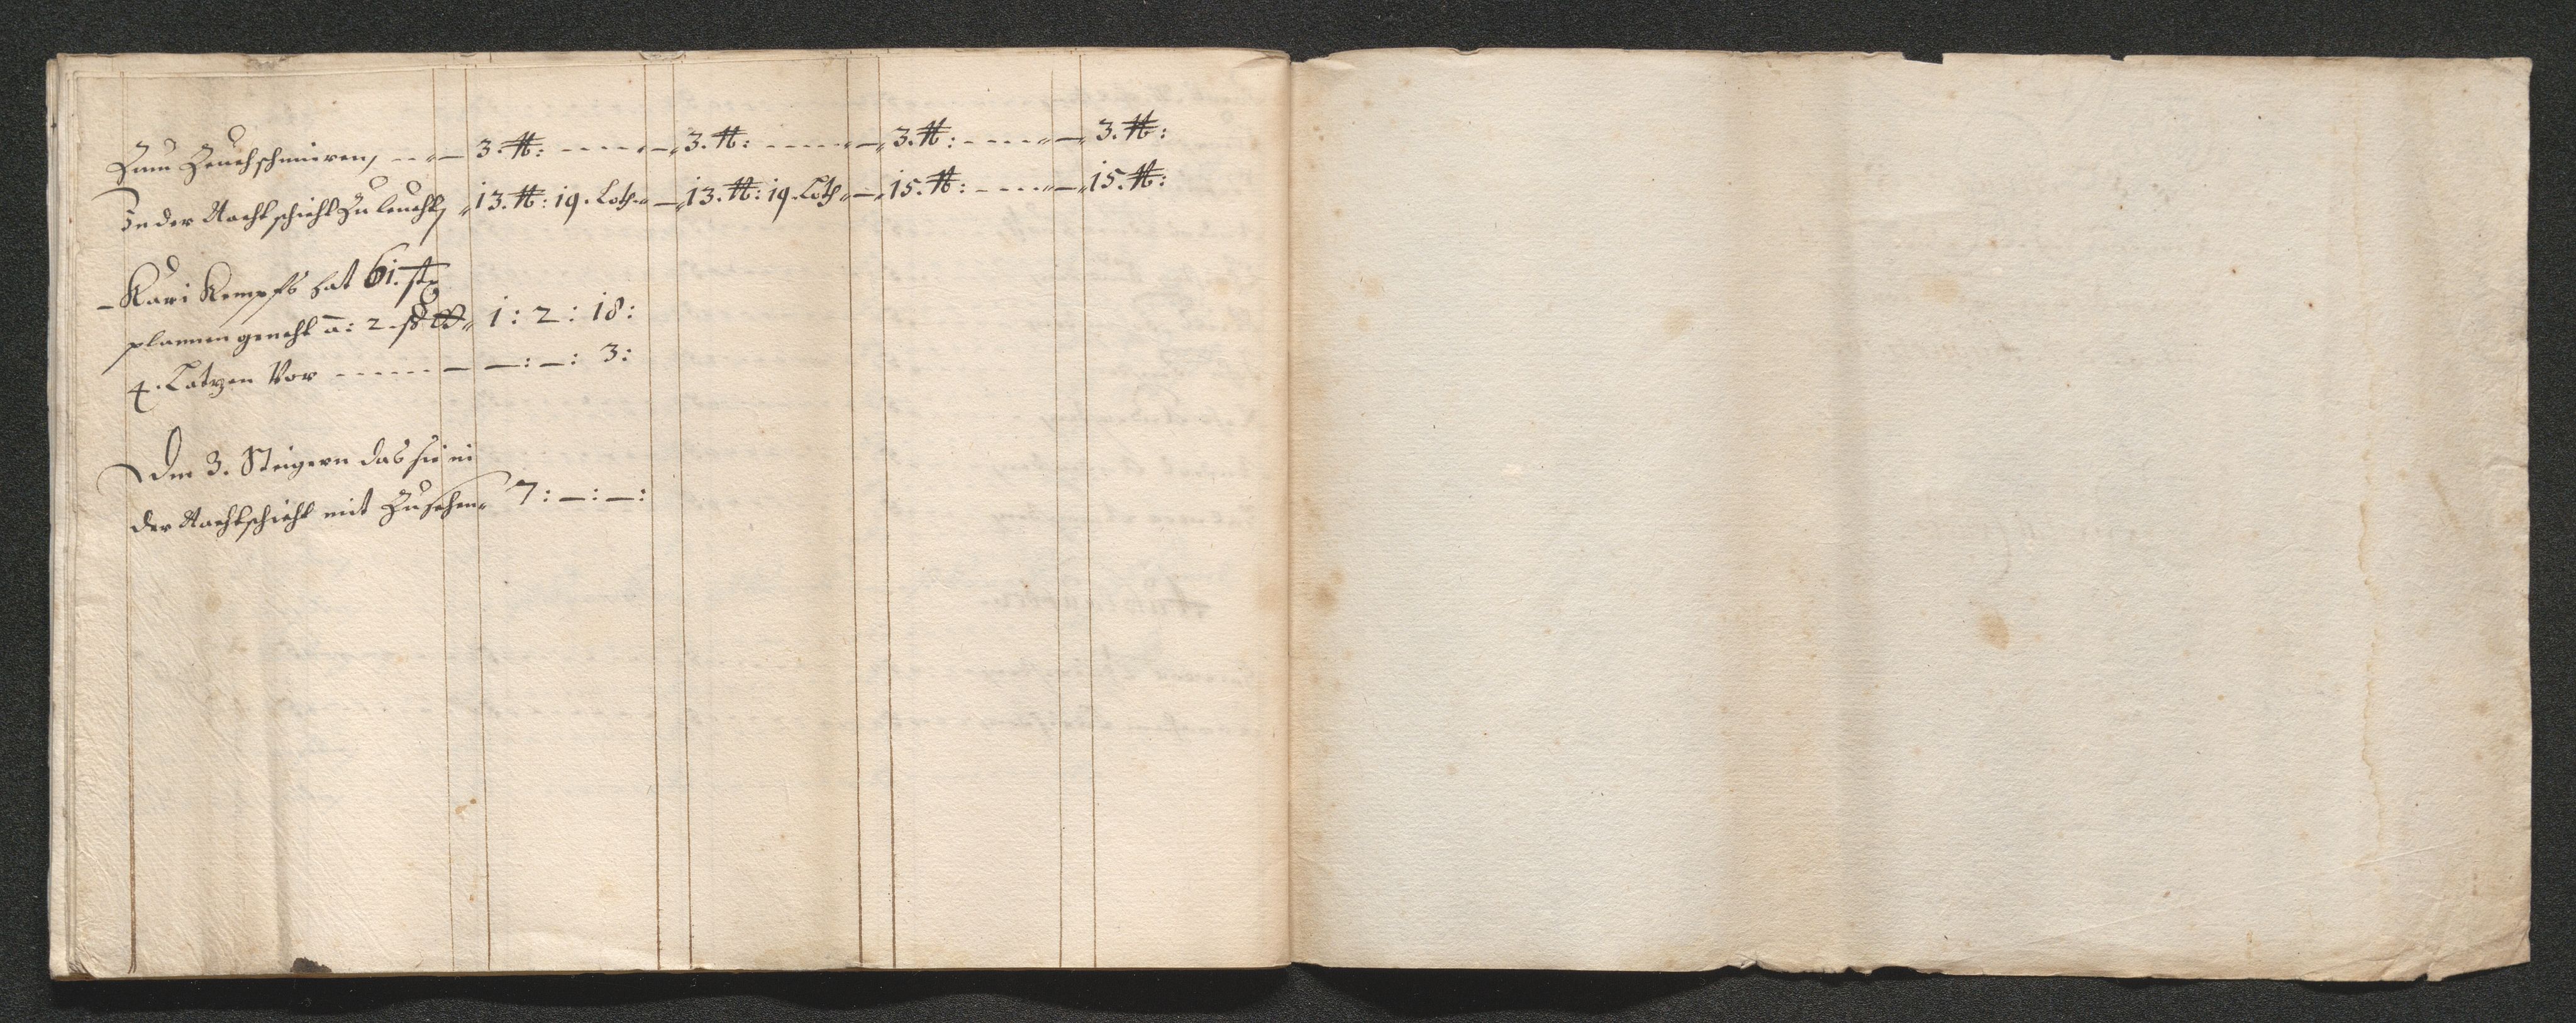 Zum Zeuchschmieren, - - - — 3. ℔: - - - - - — 3. ℔: - - - - - — 3. ℔: - - - - — 3. ℔:
In der Nachtschicht zu leucht, 13. ℔: 19. Loth — 13. ℔: 19. Loth — 15. ℔: - - - - — 15. ℔:
- Kari Kempfs hat 61. st
planen geneht ā: 2. 1 : 2 : 18 :
4. Latzen Vor - - - - - — — : — : 3 :
Den 3. Steigern das sie in
der Nachtschicht mit Zusehen 7 : — : — :